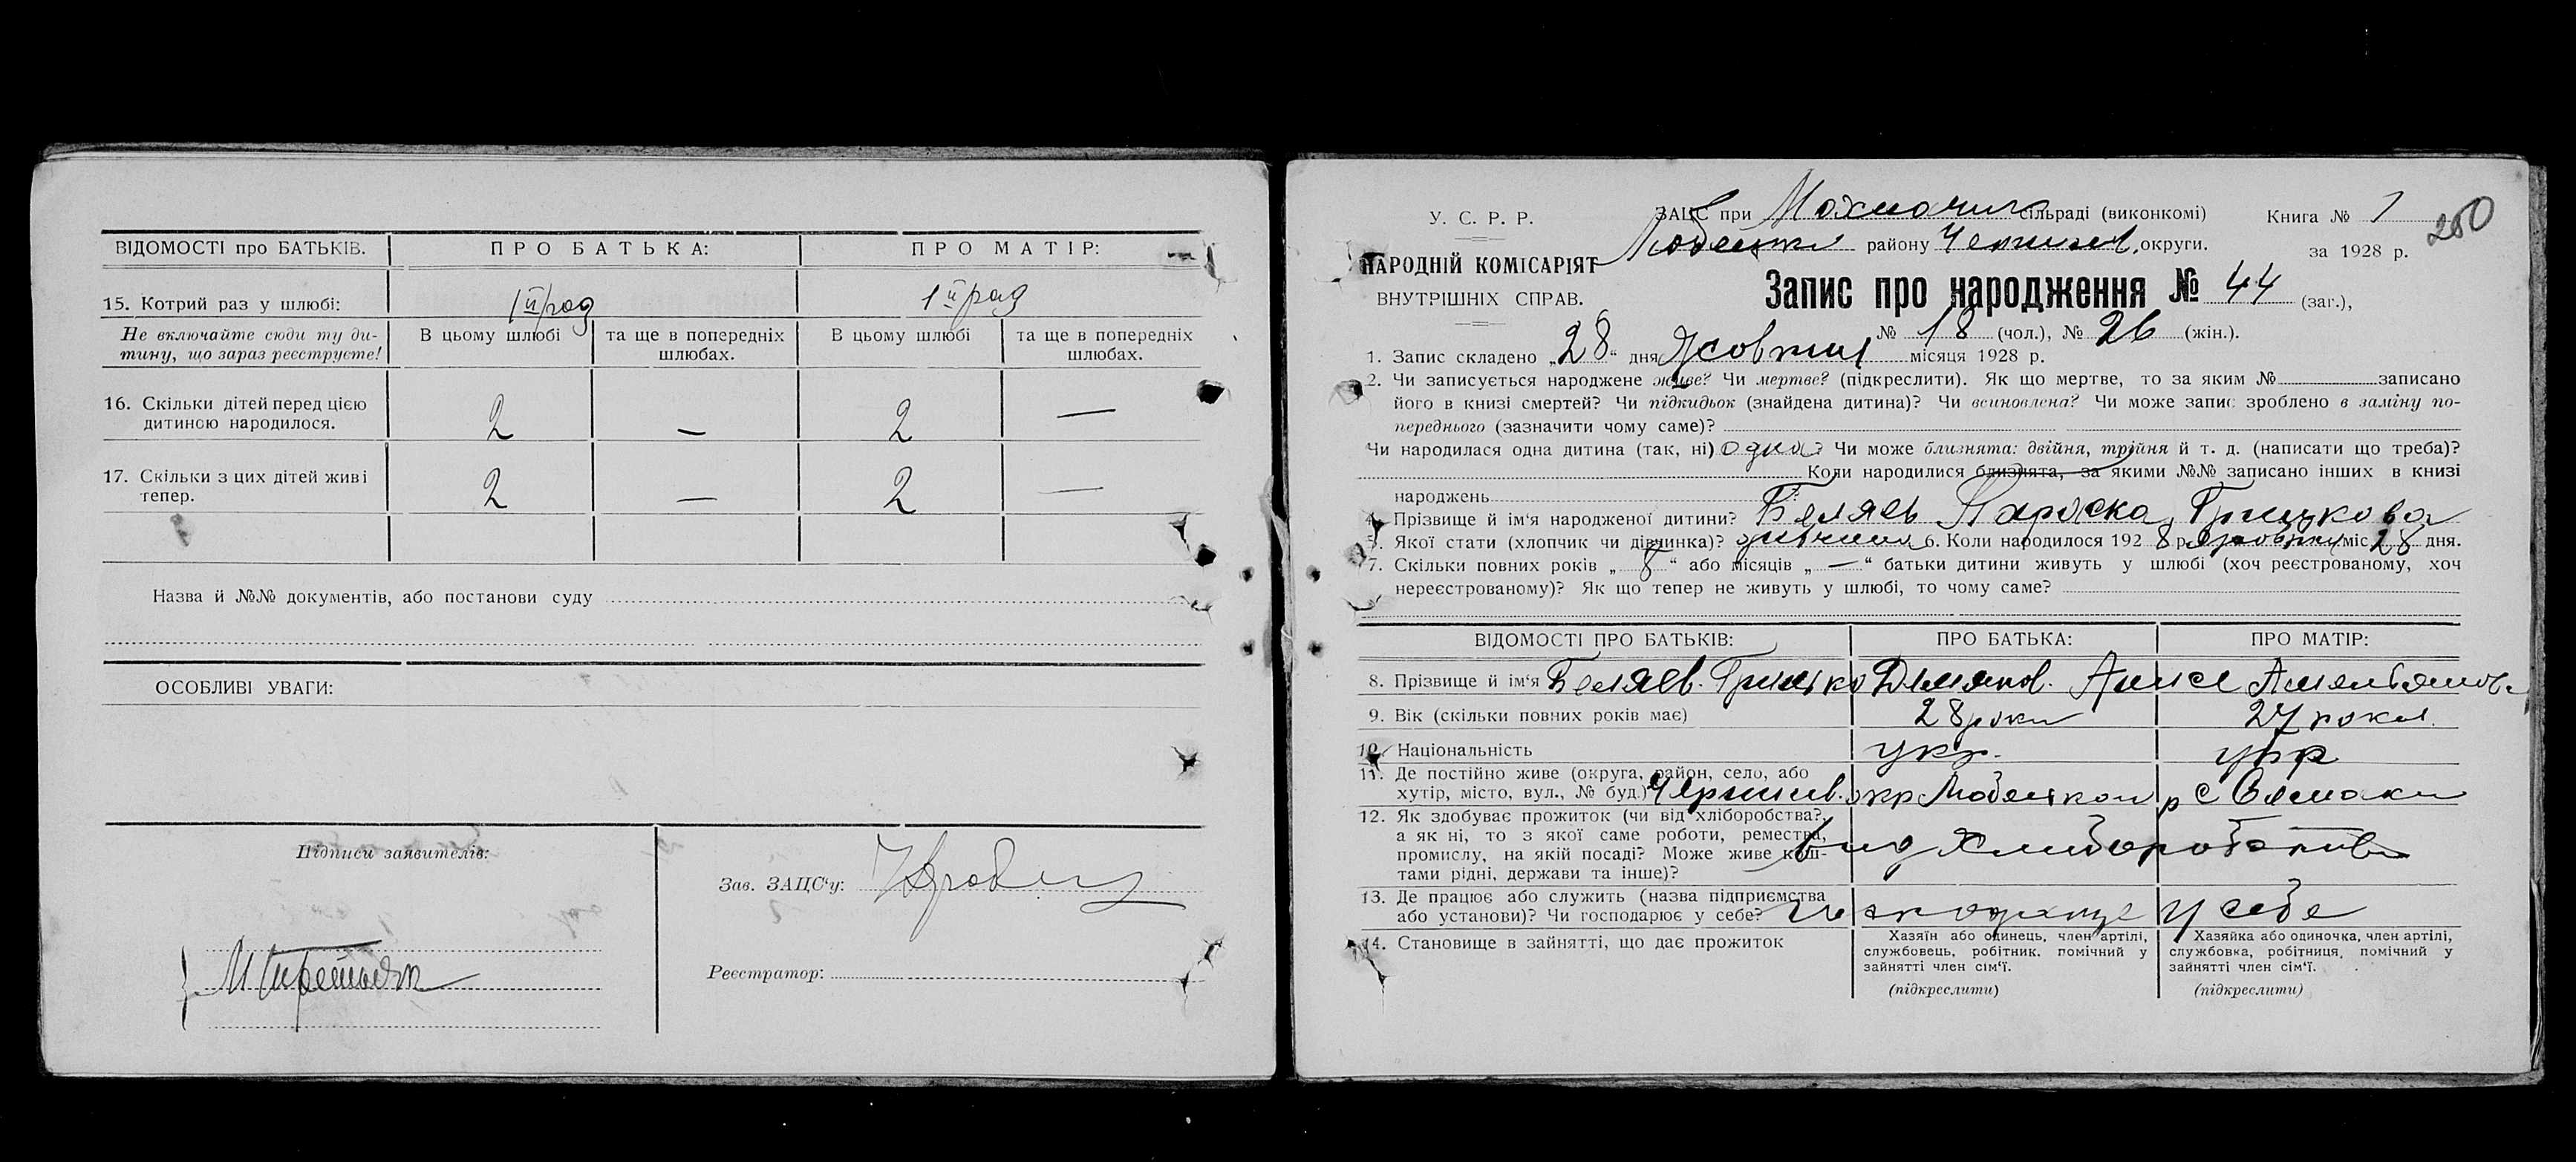 ВІДОМОСТІ про БАТЬКІВ. ПРО БАТЬКА: ПРО МАТІР:
15. Котрий раз у шлюбі: 1й раз 1й раз
Не включайте сюди ту ди- В цьому шлюбі та ще в попередніх В цьому шлюбі та ще в попередніх
тину, що зараз реєструєте! шлюбах. шлюбах.
16. Скільки дітей перед цією
дитиною народилося. 2 — 2 —
17. Скільки з цих дітей живі
тепер. 2 — 2 —
Назва й №№ документів, або постанови суду
ОСОБЛИВІ УВАГИ:
Підписи заявителів:
Зав. ЗАЦС‘у:
Реєстратор:
У. С. Р. Р. ЗАЦС при сільраді (виконкомі) Книга № 1 250
району Черниг. округи. за 1928 р.
НАРОДНІЙ КОМІСАРІЯТ
ВНУТРІШНІХ СПРАВ. Запис про народження № 44 (заг.),
№ 18 (чол.), № 26 (жін.).
1. Запис складено „28“ дня місяця 1928 р.
2. Чи записується народжене живе? Чи мертве? (підкреслити). Як що мертве, то за яким № записано
його в книзі смертей? Чи підкидьок (знайдена дитина)? Чи всиновлена? Чи може запис зроблено в заміну по-
переднього (зазначити чому саме)?
Чи народилася одна дитина (так, ні) одна? Чи може близнята: двійня, трійня й т. д. (написати що треба)?
Коли народилися близнята, за якими №№ записано інших в книзі
народжень
4. Прізвище й ім‘я народженої дитини? Беляев Параска Грицкова
5. Якої стати (хлопчик чи дівчинка)? 6. Коли народилося 1928 р. міс 28 дня.
7. Скільки повних років „8“ або місяців „—“ батьки дитини живуть у шлюбі (хоч реєстрованому, хоч
нереєстрованому)? Як що тепер не живуть у шлюбі, то чому саме?
ВІДОМОСТІ ПРО БАТЬКІВ: ПРО БАТЬКА: ПРО МАТІР:
8. Прізвище й ім‘я Беляев. Грицько
9. Вік (скільки повних років має) 28 роки 27 роки
10. Національність укр. укр
11. Де постійно живе (округа, район, село, або
хутір, місто, вул., № буд.) окр р с
12. Як здобуває прожиток (чи від хліборобства?,
а як ні, то з якої саме роботи, ремества,
промислу, на якій посаді? Може живе кош-
тами рідні, держави та інше)?
13. Де працює або служить (назва підприємства
або установи)? Чи господарює у себе? у себе
14. Становище в зайнятті, що дає прожиток
Хазяїн або одинець, член артілі, Хазяйка або одиночка, член артілі,
службовець, робітник. помічний у службовка, робітниця, помічний у
зайнятті член сім‘ї. зайнятті член сім‘ї.
(підкреслити) (підкреслити)